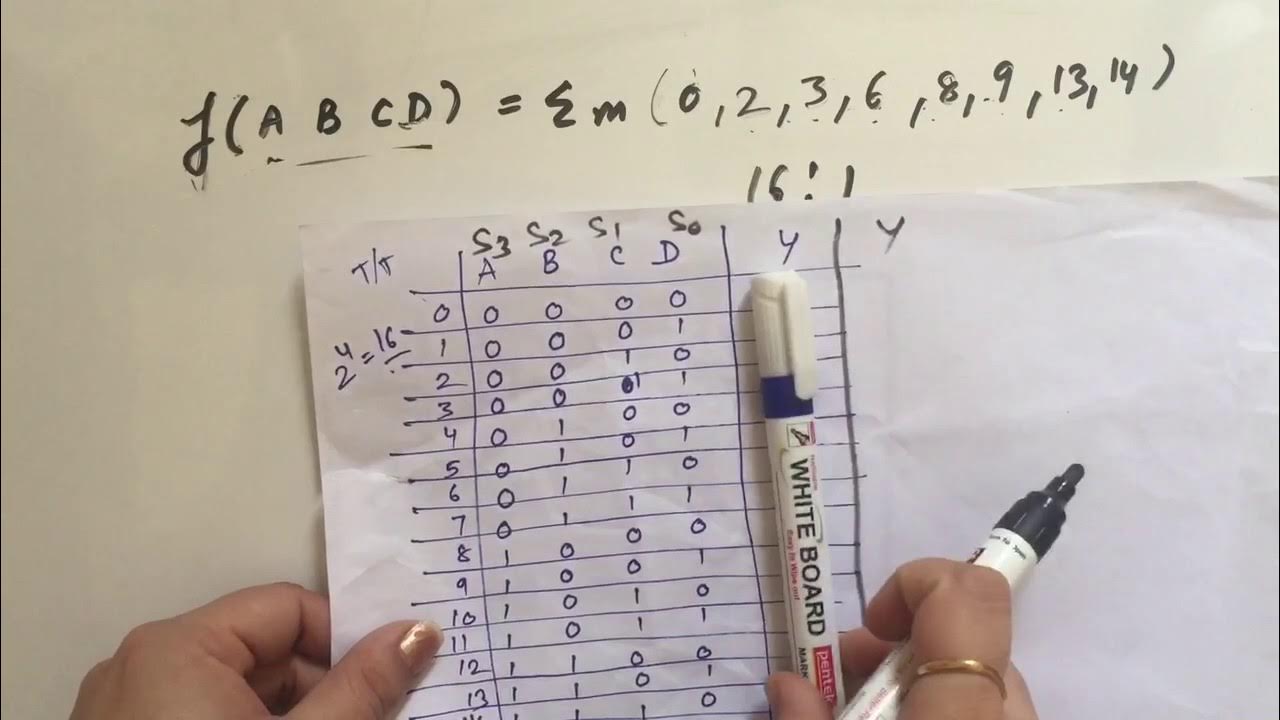 f(A B C D) = Σm(0,2,3,6,8,9,13,14)
16:1
S3 S2 S1 S0
T/T A B C D Y Y
0 0 0 0 0
2^4=16
1 0 0 0 1
2 0 0 1 0
3 0 0 1 1
4 0 1 0 0
5 0 1 0 1
6 0 1 1 0
7 0 1 1 1
8 1 0 0 0
9 1 0 0 1
10 1 0 1 0
11 1 0 1 1
12 1 1 0 0
13 1 1 0 1
14 1 1 1 0
WHITE BOARD
Easy to Wipe out
MARK
pentek